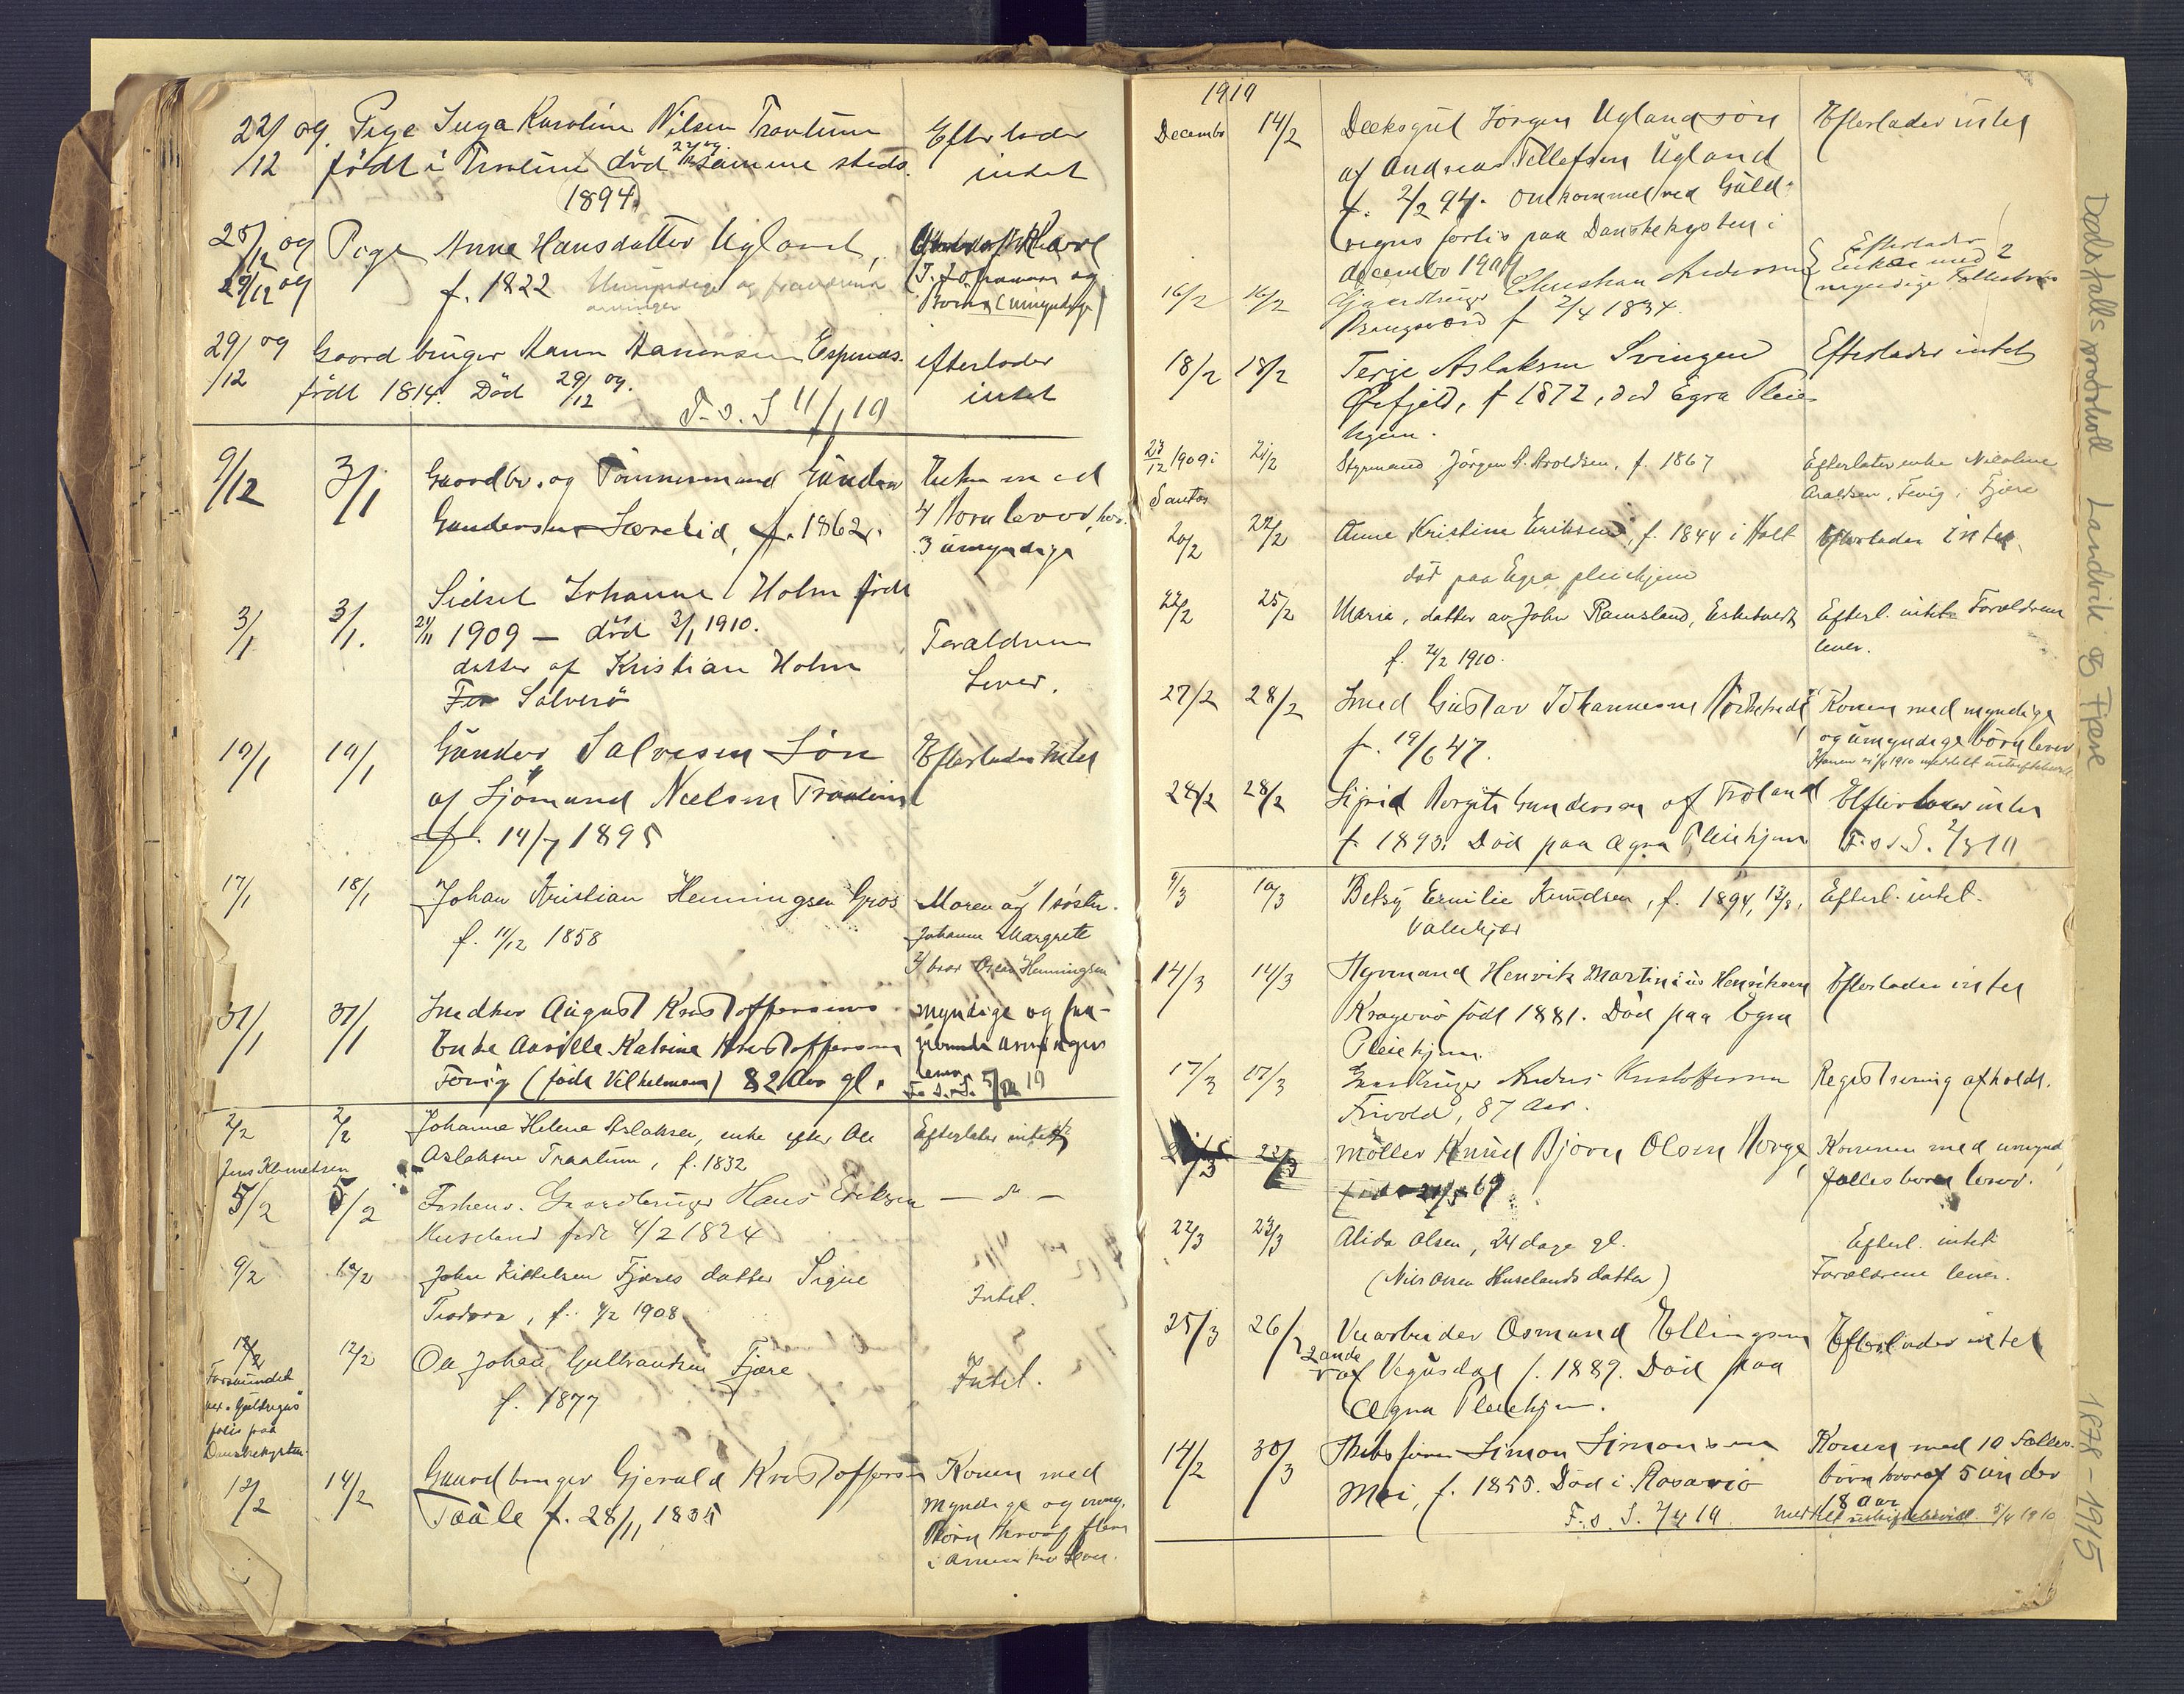 22/12 09. Pige Inga Karoline Nilsen Traalum Efterlader
født i Traalum død 22/12 09. samme steds. intet
1894.
28/12 09 Pige Anne Hansdatter Ugland,
29/12 09 f. 1822 Umyndige og fraværende
arvinger
J. Johannsen og
Børn (umyndige)
29/12 09 Gaardbruger Aanen Aanensen Espenæs. efterlader
født 1814. Død 29/12 09. intet
F. s. S 11/1 10
9/12 3/1 Gaardbr. og Tømmermand Gunder Enken med
Gundersen Særelid, f. 1862. 4 Børn lever, hvor.
3 umyndige
Sidsel Johanne Holm født
3/1 3/1. 21/11 1909 – død 3/1 1910. Forældrene
datter af Kristian Holm Lever.
Salverö
19/1 19/1 Gunder Salvesen Søn Efterlader intet
af Sjømand Nielsen Traalum
f. 14/7 1895
17/1 18/1 Johan Kristian Henningsen Gros Moren og 1 søster.
f. 11/12 1858 Johanne Margrete
& bror Oscar Henningsen
31/1 31/1 Snedker August Kristoffersens myndige og fra-
Enke Aasille Katrine Kristoffersen værende arvinger
Fevig (født Vilhelmsen) 82 Aar gl. lever
F. s. S. 5/2 10
2/2 2/2 Johanne Helene Aslaksen, enke efter Ole Efterlater intet
Aslaksen Traalum, f. 1832
Jens Klemetsen
5/2 5/2 Forhenv. Gaardbruger Hans Eriksen — do —
Kuseland født 4/2 1824
9/2 10/2 John Kittelsen Fjæres datter Signe Intet.
Teodora, f. 4/2 1908
12/2 12/2 Ole Johan Gulbrandsen Fjære Intet.
Forsvundet f. 1877
ver. Guldregns
forlis paa
Danskekysten.
12/2 14/2 Gaardbruger Gjeruld Kristoffersen Konen med
Taale f. 28/11 1835 myndige og umy.
Børn hvoraf flere
i Amerika lever.
1910
Decembr 14/2 Dæksgut Jørgen Ugland søn Efterlader intet
af Andreas Tellefsen Ugland
f. 2/2 94. omkommet ved Guld-
regns forlis paa Danskekysten i
december 1909
16/2 16/2 Gaardbruger Christian Andersen Efterlader
Prangsvand f 2/4 1834. Enke med 2
myndige Fællesbørn
18/2 18/2 Terje Aslaksen Svingen Efterlader intet
Øifjeld, f 1872, død Egra Pleie
hjem.
23/12 1909 i 21/2 Styrmand Jørgen A. Aroldsen, f. 1867 Efterlater enke Nicoline
Santos Araldsen, Fevig i Fjære
20/2 22/2 Anne Kristine Eriksen, f. 1844 i Holt Efterlader intet.
død paa Egra pleiehjem
22/2 25/2 Maria, datter av John Ramsland, Eskedveit Efterl. intet. Forældrene
f. 21/2 1910. lever.
27/2 28/2 Smed Gustav Johannesen Konen med myndige
f. 19/6 47. og umyndige børn lever
Konen 21/4 1910 meddelt uskiftebevill.
28/2 28/2 Sigrid Borgite Gundersen af Froland Efterlader intet
f. 1893. Død paa Egra Pleiehjem F. s. S. 2/3 10
9/3 10/3 Betsy Emilie Knudsen, f. 1894, 13/8, Efterl. intet.
14/3 14/3 Styrmand Henrik Martinius Henriksen Efterlader intet
Kragerø født 1881. Død paa Egra
Pleiehjem.
17/3 17/3 Gaardbruger Anders Kristoffersen Registrering afholdt.
Frivold, 87 Aar.
22/3 Møller Knud Bjørn Olsen Berge, Konen med umynd.
69 fælles børn lever.
22/3 23/3 Alida Olsen, 24 dage gl. Efterl. intet
(Nils Olsen Huselands datter) Forældrene lever.
25/3 26/3 Veiarbeider Osmund Ellingsen Efterlader intet
af Vegusdal f. 1889. Død paa
Egra Pleiehjem.
14/2 30/3 Skibsfører Simon Simonsen Konen med 10 Fælles-
Moi, f. 1855. Død i Rosario børn hvoraf 5 under
18 aar
F. s. S. 2/4 10. meddelt uskiftebevill. 5/4 1910
Dødsfallsprotokoll Landvik og Fjære 1878 – 1915